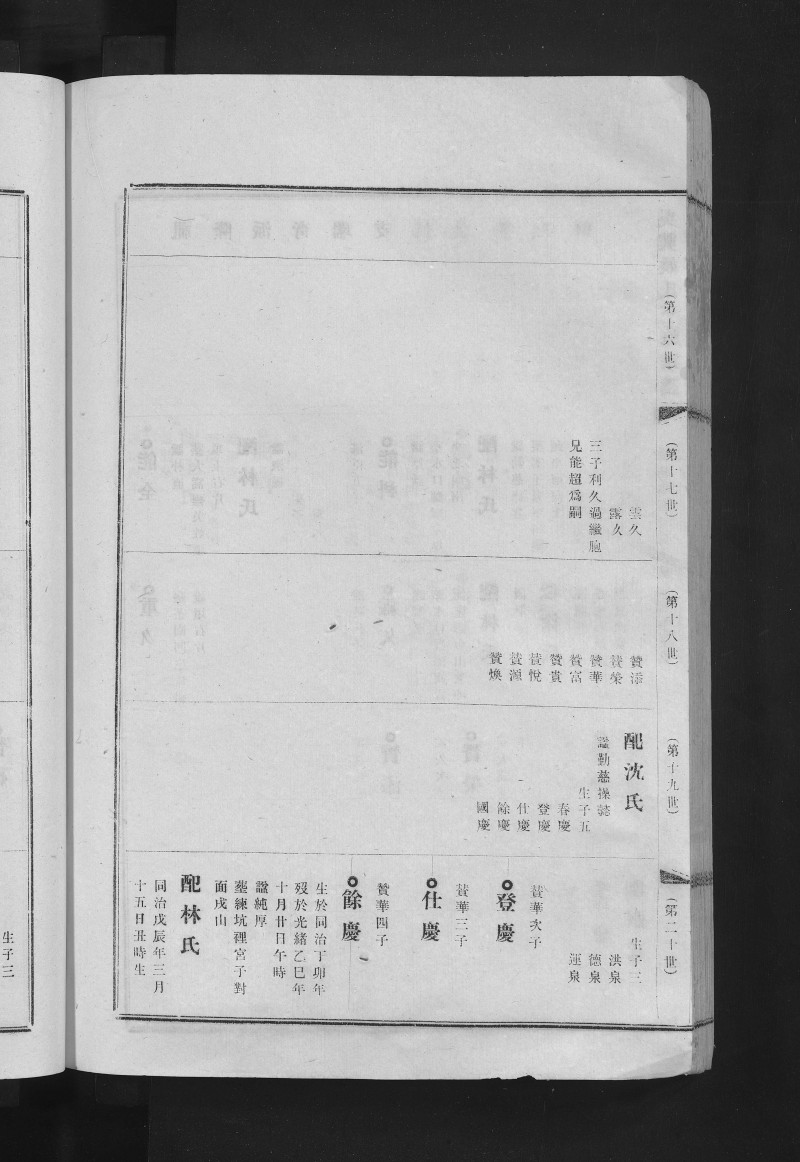 (第十六世)
(第十七世)
雲久
露久
三子利久過繼胞
兄能超爲嗣
(第十八世)
贊添
贊榮
贊華
贊富
贊貴
贊悅
贊源
贊煥
(第十九世)
配沈氏
謚勤慈操懿
生子五
春慶
登慶
仕慶
餘慶
國慶
(第二十世)
生子三
洪泉
德泉
運泉
贊華次子
登慶
贊華三子
仕慶
贊華四子
餘慶
生於同治丁卯年
歿於光緒乙巳年
十月廿日午時
謚純厚
塟練坑裡宮子對
面戌山
配林氏
同治戊辰年三月
十五日丑時生
生子三